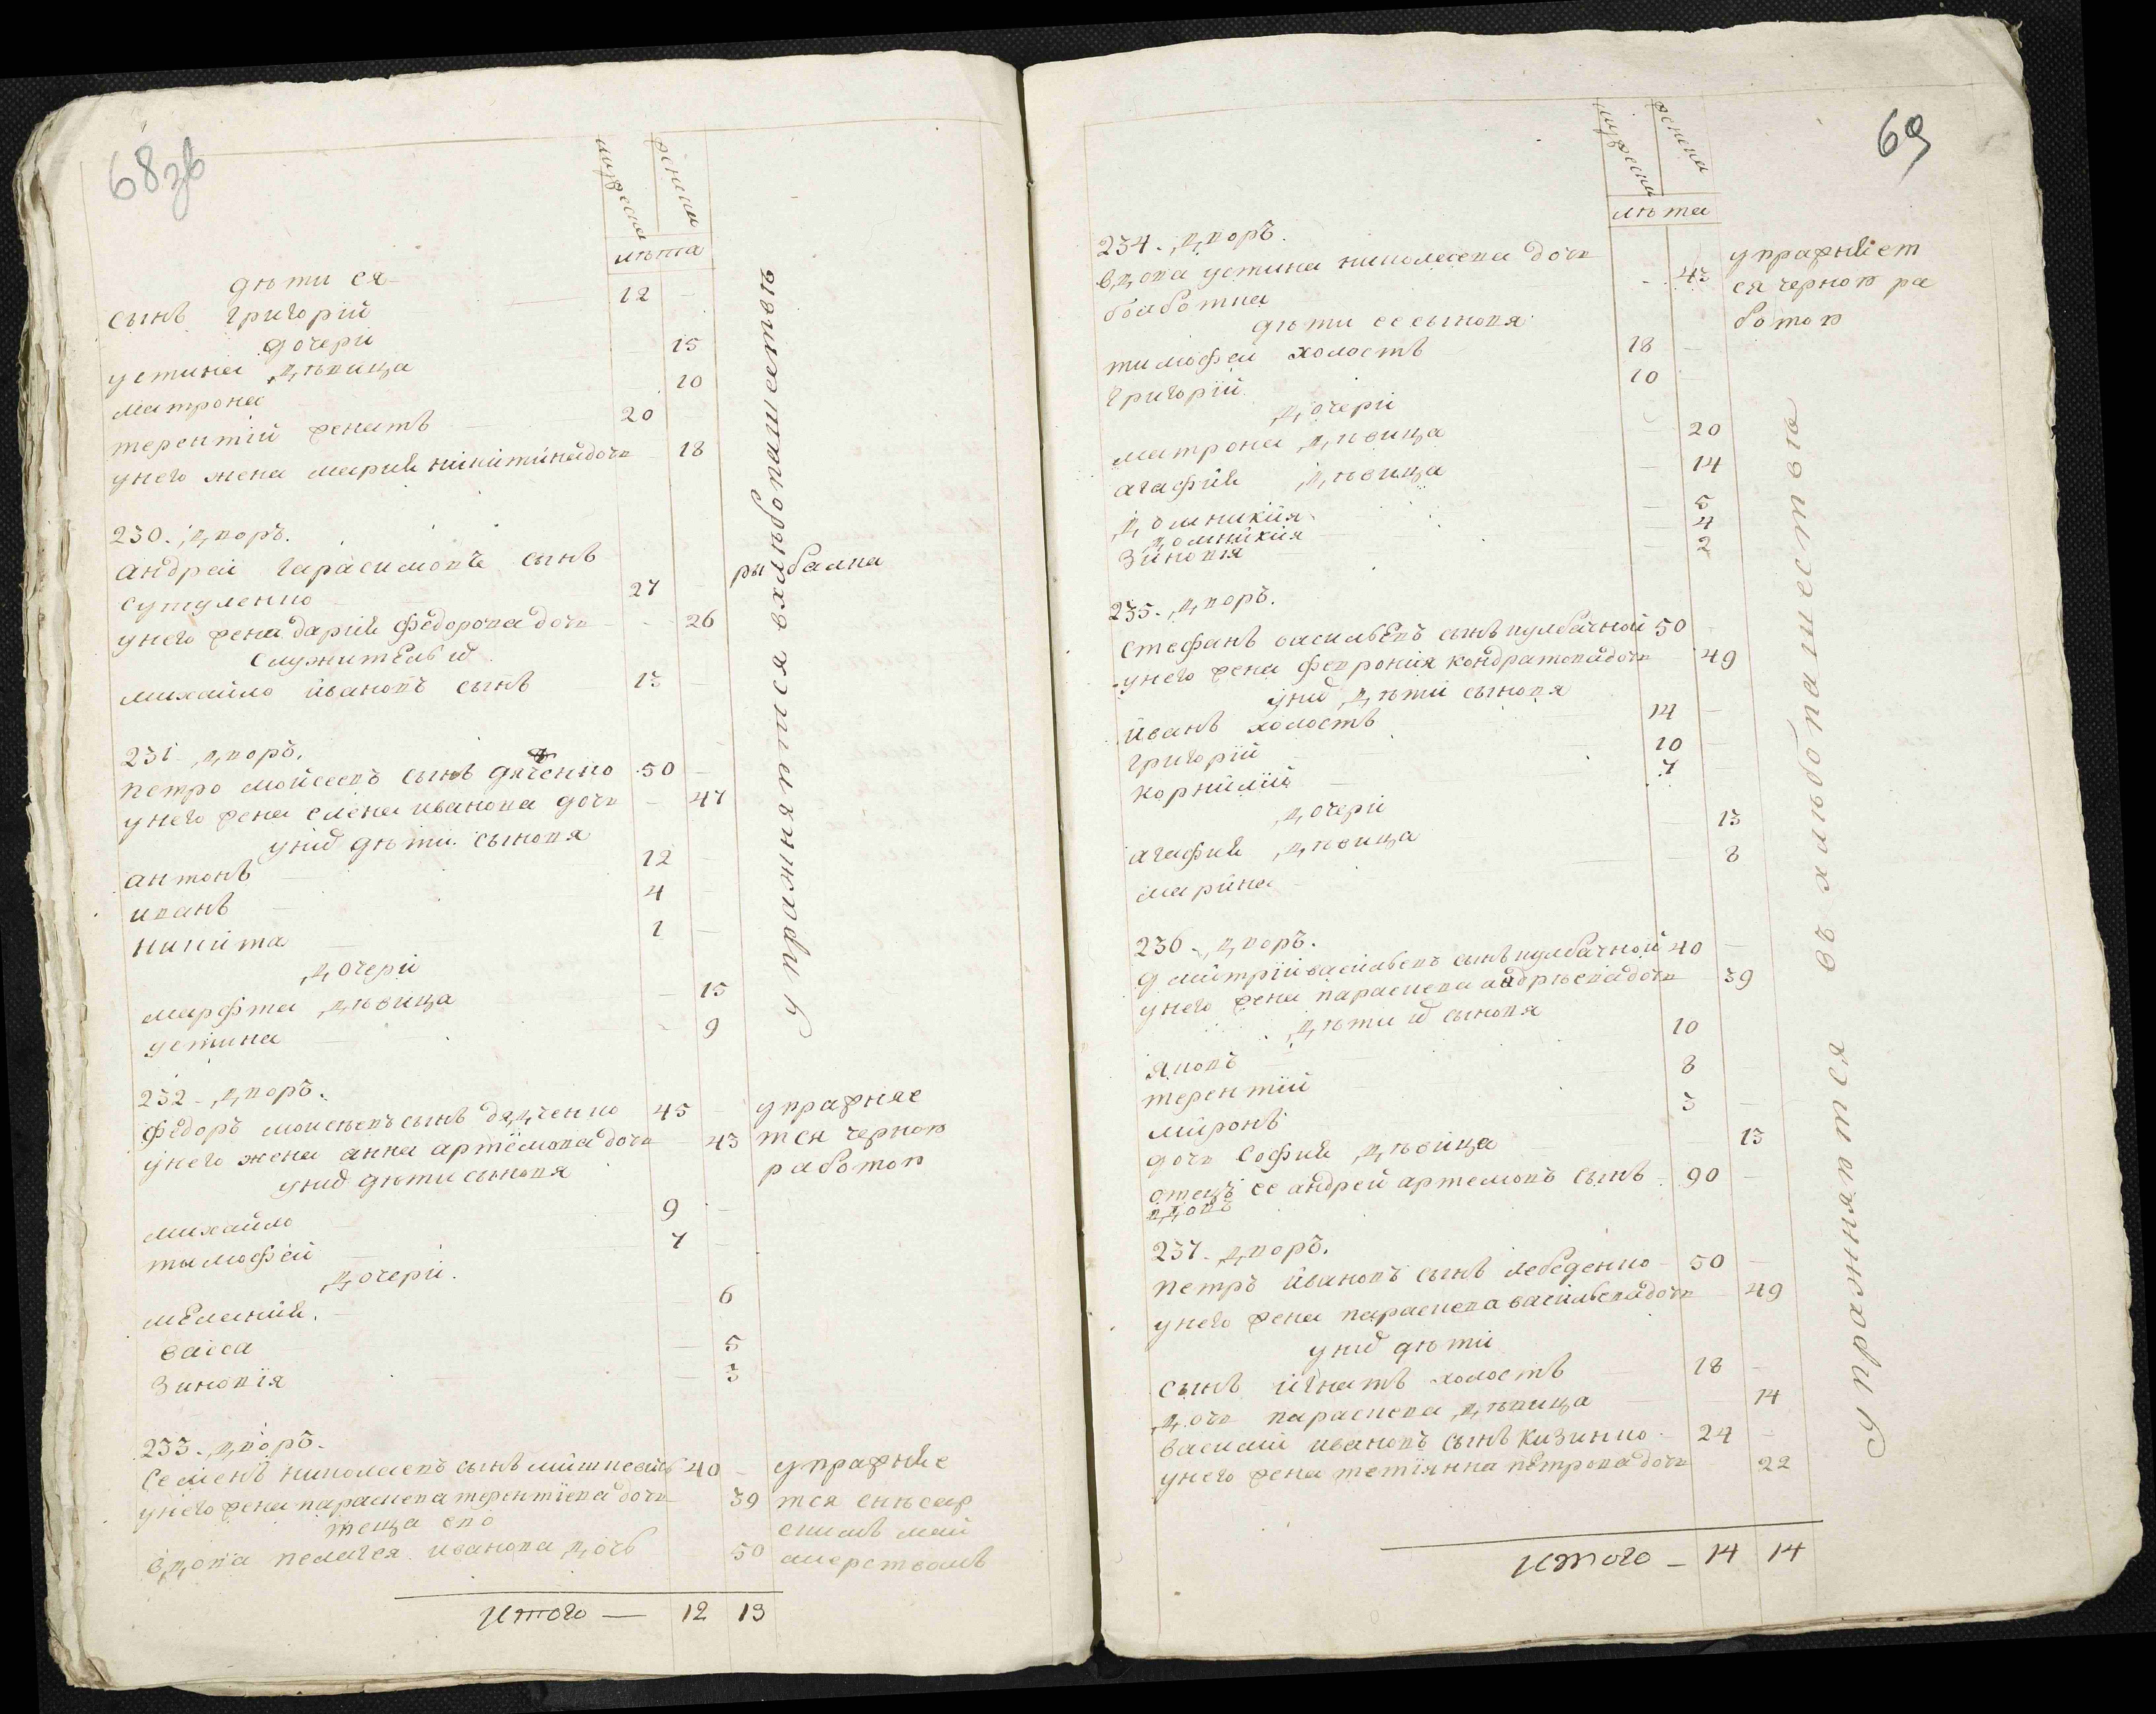 68зв
мужеска
женска
лѣта
дѣти ея
сынъ григорій 12
дочери
устина дѣвица 15
матрона 10
терентій женатъ 20
унего жена марія нікитина дочь 18
230. дворъ.
андрей гарасимовъ сынъ
сутуленко 27 рыбалка
унего жена дарія федорова дочь 26
служитель ихъ
михайло ивановъ сынъ 13
231. дворъ.
петро мойсеевъ сынъ дяченко 50
унего жена елена иванова дочь 47
унихъ дѣти сыновя
антонъ 12
иванъ 4
никита 1
дочери
марфта дѣвица 15
устина 9
упражняются вхлѣбопашествѣ
232. дворъ.
федоръ моисѣевъ сынъ дядченко 45 упражняе
унего жена анна артемова дочь 43 тся черною
унихъ дѣти сыновя работою
михайло 9
тимофей 7
дочери.
меланія. 6
васса 5
зиновія 3
233. дворъ.
семенъ николаевъ сынъ 40 упражняе
унего жена параскева терентіева дочь 39 тся
теща его
вдова пелагея иванова дочь 50
итого — 12 13
69
мужеска
женска
лѣта
234. дворъ.
вдова устина николаева дочь упражняет
43 ся черною ра
дѣти ее сыновя ботою
тимофей холостъ 18
григорій 10
дочери
матрона дѣвица 20
агафія дѣвица 14
домникія 5
домникія 4
зиновія 2
235. дворъ.
стефанъ васильевъ сынъ кулбачной 50
унего жена феврония кондратова дочь 49
унихъ дѣти сыновя
иванъ холостъ 14
григорій 10
корнилій 7
дочери
агафия дѣвица 13
марина 8
236. дворъ.
дмитрій васильевъ сынъ кулбачной 40
унего жена параскева андрѣева дочь 39
дѣти ихъ сыновя
яковъ 10
терентій 8
миронъ 3
дочь софия дѣвица 13
отецъ ее андрей артемовъ сынъ 90
вдовъ
237. дворъ.
петръ ивановъ сынъ лебеденко 50
унего жена параскева васильева дочь 49
унихъ дѣти
сынъ игнатъ холостъ 18
дочь параскева дѣвица 14
василій ивановъ сынъ кизинко 24
унего жена тетіянна петрова дочь 22
упражняются въ хлѣбопашествѣ
итого — 14 14